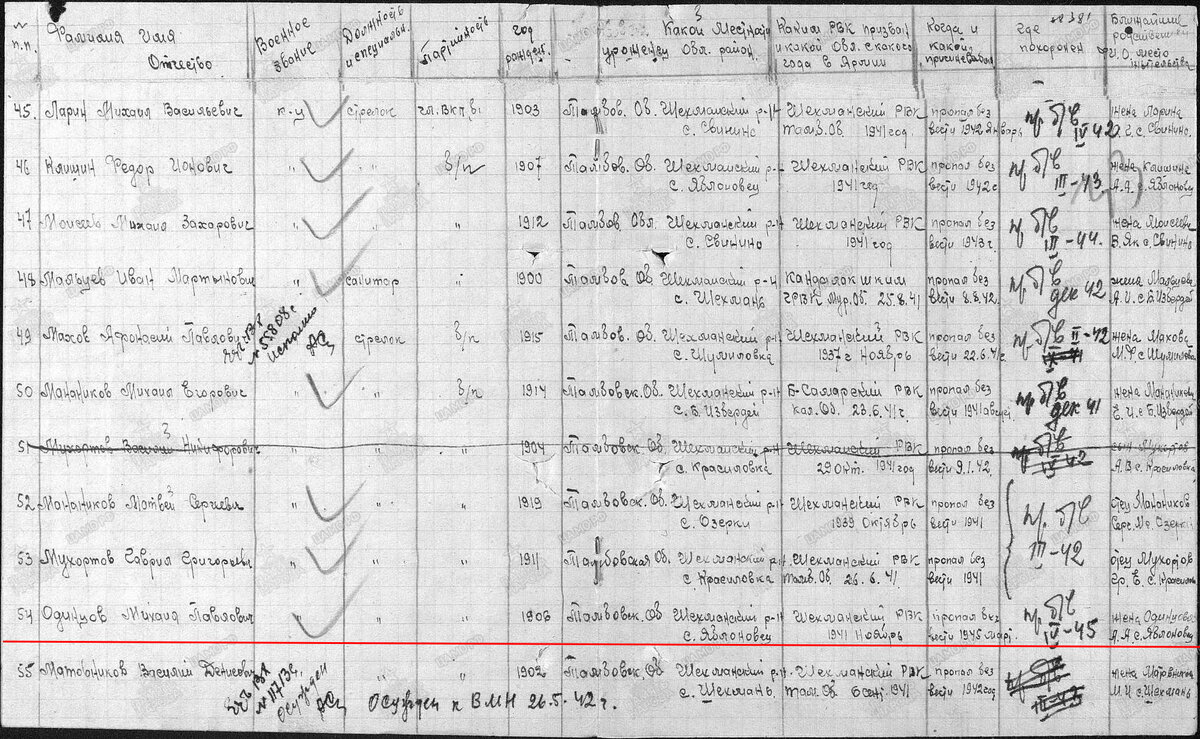 № п.п. Фамилия Имя Отчество Военное звание Должность и специальн. Партийность год рожден. Какой Местности уроженец Обл. район. Каким РВК призван и какой Обл. с какого года в Армии Когда и какой причине выбыл где похоронен Ближайшие родственники
3
№ 381
45. Ларин Михаил Васильевич к-ц стрелок чл. ВКП(в) 1903 Тамбов. Об. Шехманский р-н Шехманский РВК пропал без пр б/в жена Ларина
с. Свинино Тамб. Об. 1941 год вести 1942 Январь IV-42 с. Свинино
46 Клишин Федор Ионович " " б/п 1907 Тамбов. Об. Шехманский р-н Шехманский РВК пропал без пр б/в жена Клишина
с. Яблоновец 1941 год вести 1942 г III-43. А.Я. Яблоновец
47 Моисеев Михаил Захарович " " " 1912 Тамбов. Обл. Шехманский р-н Шехманский РВК пропал без пр б/в жена Моисеева
с. Свинино 1941 год вести 1943 г. III-44. с. Свинино
48 Мальцев Иван Мартынович " санитар " 1900 Тамбов. Об. Шехманский р-н Кандалокшким пропал без пр б/в жена Мальцова
с. Шехмань ГРВК Мур. Об. 25.8.41 вести 8.8.42. дек 42 А.И. с. Б. Избердей
49 Махов Афонасий Павлович стрелок б/п 1915 Тамбов. Об. Шехманский р-н Шехманский РВК пропал без пр б/в II-42 жена Махова
№ 55808 с. Шумиловка 1937 г Ноябрь вести 22.6.41 г М.Ф. с Шумиловка
50 Манаников Михаил Егорович " " б/п 1914 Тамбовск. Об. Шехманский р-н Б-Самарский РВК пропал без пр б/в жена Мананикова
с. Б. Избердей кал. Об. 23.6.41 г. вести 1941 дек 41 Е.И. с Б. Избердей
51 Мухортов Василий Никифорович " " " 1904 Тамбовск Об. Шехманский р-н Шехманский РВК пропал без пр б/в Мухортов
с. Красиловка 29 Окт. 1941 год вести 9.1.42. IV-42 А.В. с. Красиловка
52 Манаников Матвей Сергеевич " " " 1919 Тамбовск. Об. Шехманский р-н Шехманский РВК пропал без пр. б/в отец Манаников
с. Озерки 1939 Октябрь вести 1941 Серг. Озерки
53 Мухортов Гаврил Григорьевич " " " 1911 Тамбовская Об. Шехманский р-н Шехманский РВК пропал без III-42 отец Мухортов
с Красиловка Тамб. Об. 26.6.41 вести 1941 Гр. Е. с. Красиловка
54 Одинцов Михаил Павлович " " " 1906 Тамбовск. Об Шехманский р-н Шехманский РВК пропал без пр. б/в жена Одинцова
с. Яблоновец 1941 Ноябрь вести 1945 март. IV-45 А.Я. с. Яблоновец
55 Матовников Василий Денисович " " 1902 Тамбовск. Об Шехманский р-н Шехманский РВК пропал без жена Матовникова
с. Шехмань Тамб. Об 6 сент. 1941 вести 1942 год М.И. с. Шехмань
Осужден Осужден к ВМН 26.5.42 г.